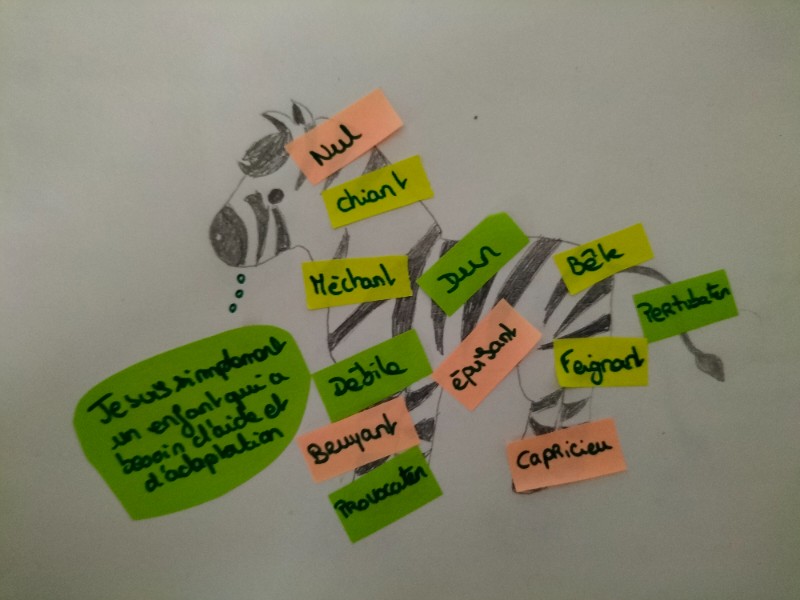 Nul
chiant
Méchant
Dur
Bête
Perturbateur
Débile
épuisant
Feignant
Bruyant
Capricieu
Provocateur
Je suis simplement
un enfant qui a
besoin d'aide et
d'adaptation